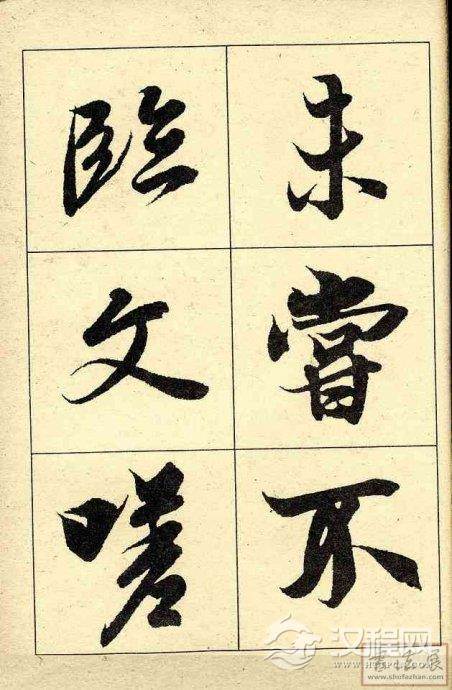 未嘗不
臨文嗟
汉程网
www.shufazhan.com